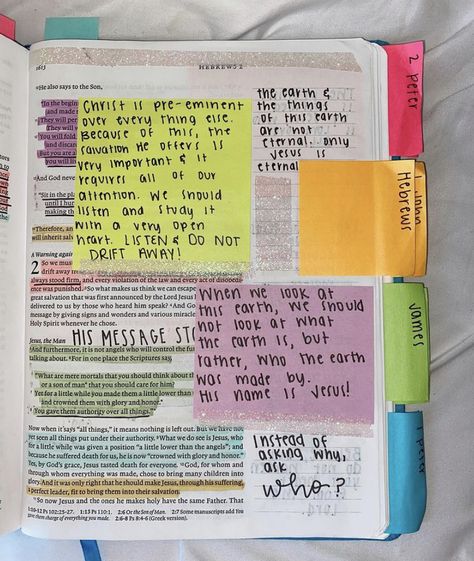 1613
HEBREWS 2
He also says to the Son,
"In the beginn
and made
They will per
You will fold
and discar
But you are a
And God never
"Sit in the plac
until I hu
making th
Therefore, an
will inherit salva
Christ is pre-eminent
over every thing else.
Because of this, the
salvation He offers is
very important & it
requires all of our
attention. We should
listen and study it
with a very open
heart. LISTEN & DO NOT
DRIFT AWAY!
the earth &
the things
of this earth
are not
eternal. only
Jesus is
eternal
2 Peter
Hebrews
James
A Warning again
2 So we must
drift away from
always stood firm, and every violation of the law and every act of disobedience
was punished. So what makes us think we can escape
great salvation that was first announced by the Lord Jesus
delivered to us by those who heard him speak? And God
message by giving signs and wonders and various miracles
Holy Spirit whenever he chose.
Jesus, the Man
HIS MESSAGE STO
And furthermore, it is not angels who will control the futu
talking about. For in one place the Scriptures say,
"What are mere mortals that you should think about th
or a son of man that you should care for him?
Yet for a little while you made them a little lower than
and crowned them with glory and honor.
You gave them authority over all things."
When we look at
this earth, we should
not look at what
the earth is, but
rather, who the earth
was made by.
His name is Jesus!
Now when it says "all things," it means nothing is left out. But we have not
yet seen all things put under their authority. What we do see is Jesus, who
for a little while was given a position "a little lower than the angels"; and
because he suffered death for us, he is now "crowned with glory and honor."
Yes, by God's grace, Jesus tasted death for everyone. God, for whom and
through whom everything was made, chose to bring many children into
glory. And it was only right that he should make Jesus, through his suffering,
a perfect leader, fit to bring them into their salvation.
So now Jesus and the ones he makes holy have the same Father. That
Instead of
asking why,
ask
who?
1:10-12 Ps 102:25-27. 1:13 Ps 110:1. 2:6 Or the Son of Man. 2:6-8 Ps 8:4-6 (Greek version). 2:7 Some manuscripts add You
gave them charge of everything you made.